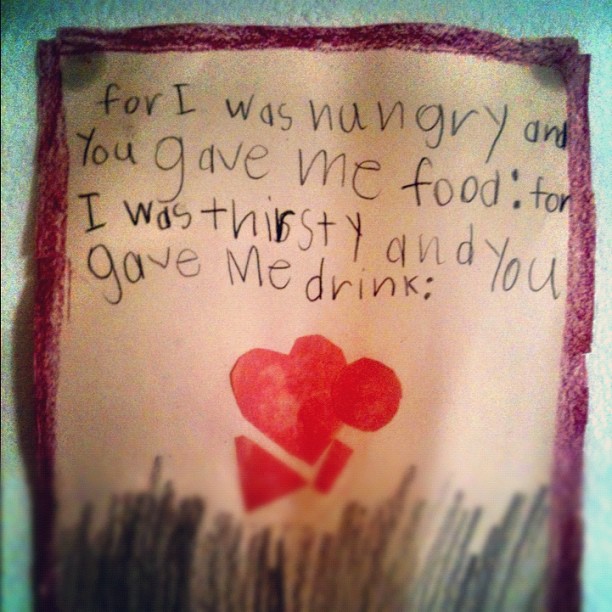 for I was hungry and
You gave me food: for
I was thirsty and You
gave Me drink: